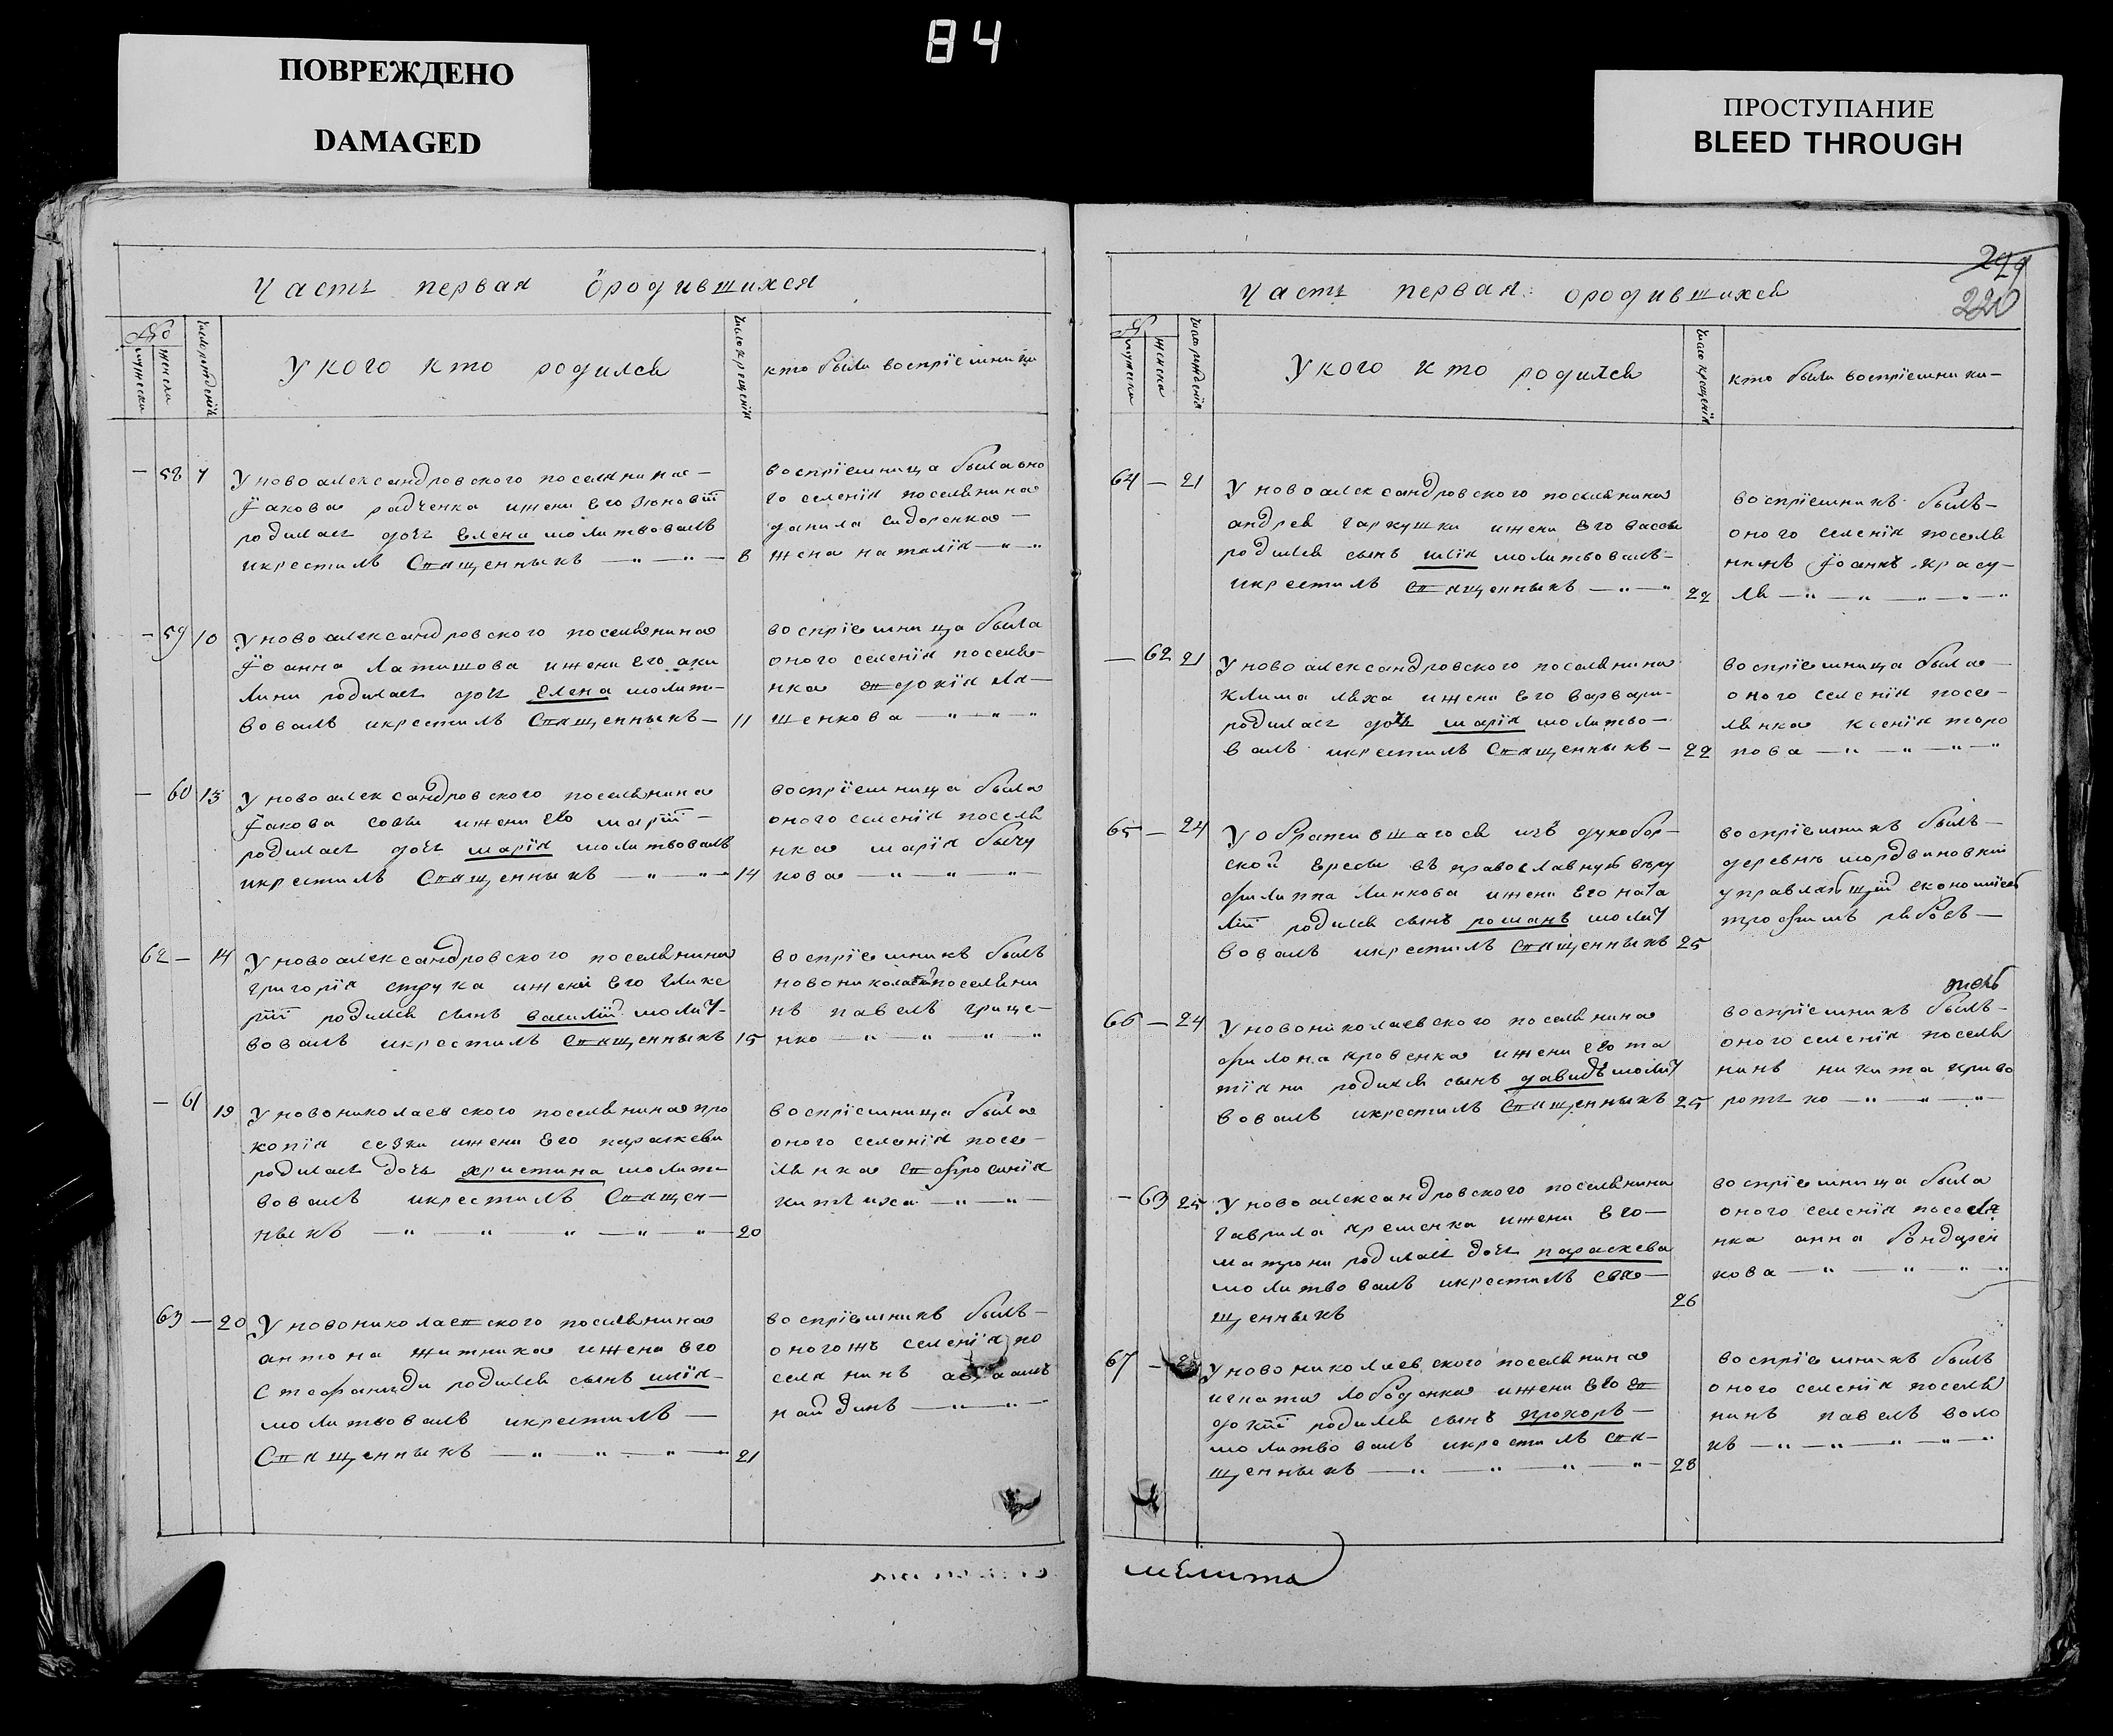 84
ПОВРЕЖДЕНО
DAMAGED
ПРОСТУПАНИЕ
BLEED THROUGH
Часть первая ородившихся
№
мужески
женски
число рождения
У кого кто родился
число крещенія
кто были воспріемники
— 58 7 У новоалександровского поселянина —
Іакова радченка ижени Его Зіновіи
родилась дочь Елена молитвовалъ
икрестилъ Священникъ — " — " — 8
воспріемница была оно
го селенія поселянина
данила сидоренка —
жена наталія — " — "
— 59 10 У новоалександровского поселянина
Іоанна Латишова ижени Его аки
лини родилась дочь Елена молит-
вовалъ икрестилъ Священникъ — 11
воспріемница была
оного селенія поселя-
нка Евдокія Ля-
шенкова — " — " — "
— 60 13 У новоалександровского поселянина
Іакова совы ижени Его маріи —
родилась дочь марія молитвовалъ
икрестилъ Священникъ — " — " — 14
воспріемница была
оного селенія поселя
нка марія бычу
кова — " — " — " —
62 — 14 У новоалександровского поселянина
григорія струка ижени Его Глике
ріи родился сынъ василій молит-
вовалъ икрестилъ Священникъ 15
воспріемникъ былъ
новониколаевскій поселяни
нъ павелъ грице-
нко — " — " — " — "
— 61 19 У новониколаевского поселянина про
копія сезки ижени Его параскеви
родилась дочь христина молит-
вовалъ икрестилъ Священ-
никъ — " — " — " — " — " — 20
воспріемница была
оного селенія посе-
лянка Евфросинія
китчиха — " — " —
63 — 20 У новониколаевского поселянина
антона житника ижени Его
Стефаниди родился сынъ илія —
молитвовалъ икрестилъ —
Священникъ — " — " — " — " 21
воспріемникъ былъ —
оногожъ селенія по
селянинъ авраамъ
найдинъ — " — " —
Часть первая ородившихся
220
№
мужески
женски
число рожденія
У кого кто родился
число крещенія
кто были воспріемники —
64 — 21 У новоалександровского поселянина
андрея гаркушки ижени Его вассы
родился сынъ илія молитвовалъ —
икрестилъ Священникъ — " — " 22
воспріемникъ былъ —
оного селенія поселя
нинъ Іоаннъ красу-
ля — " — " — " — " — "
— 62 21 У новоалександровского поселянина
клима ляха ижени Его варвари-
родилась дочь марія молитво-
валъ икрестилъ Священникъ — 22
воспріемница была —
оного селенія посе-
лянка ксенія торо
пова — " — " — " — "
65 — 24 У обратившагося изъ духобор-
ской Ереси въ православную вѣру
филиппа линкова ижени Его ната
ліи родился сынъ романъ молит
вовалъ икрестилъ Священникъ 25
воспріемникъ былъ —
деревнѣ мордвиновкѣ
управляющій економіею
трофимъ рябосъ —
66 — 24 У новониколаевского поселянина
филона кровенка ижени Его та
тіяни родился сынъ давидъ молит
вовалъ икрестилъ Священникъ 25
воспріемникъ былъ —
оного селенія поселя
нинъ никита криво
ротько — " — " — " —
— 63 25 У новоалександровского поселянина
гаврила яременка ижени Его —
матрони родилась дочь параскева
молитвовалъ икрестилъ свя —
щенникъ 26
воспріемница была
оного селенія поселя
нка анна бондарен
кова — " — " — " — "
67 — У новониколаевского поселянина
игната лободенка ижени Его Ев
докіи родился сынъ прохоръ —
молитвовалъ икрестилъ Свя-
щенникъ — " — " — " — " — 28
воспріемникъ былъ
оного селенія поселя
нинъ павелъ воло
къ — " — " — " — " — "
мелита